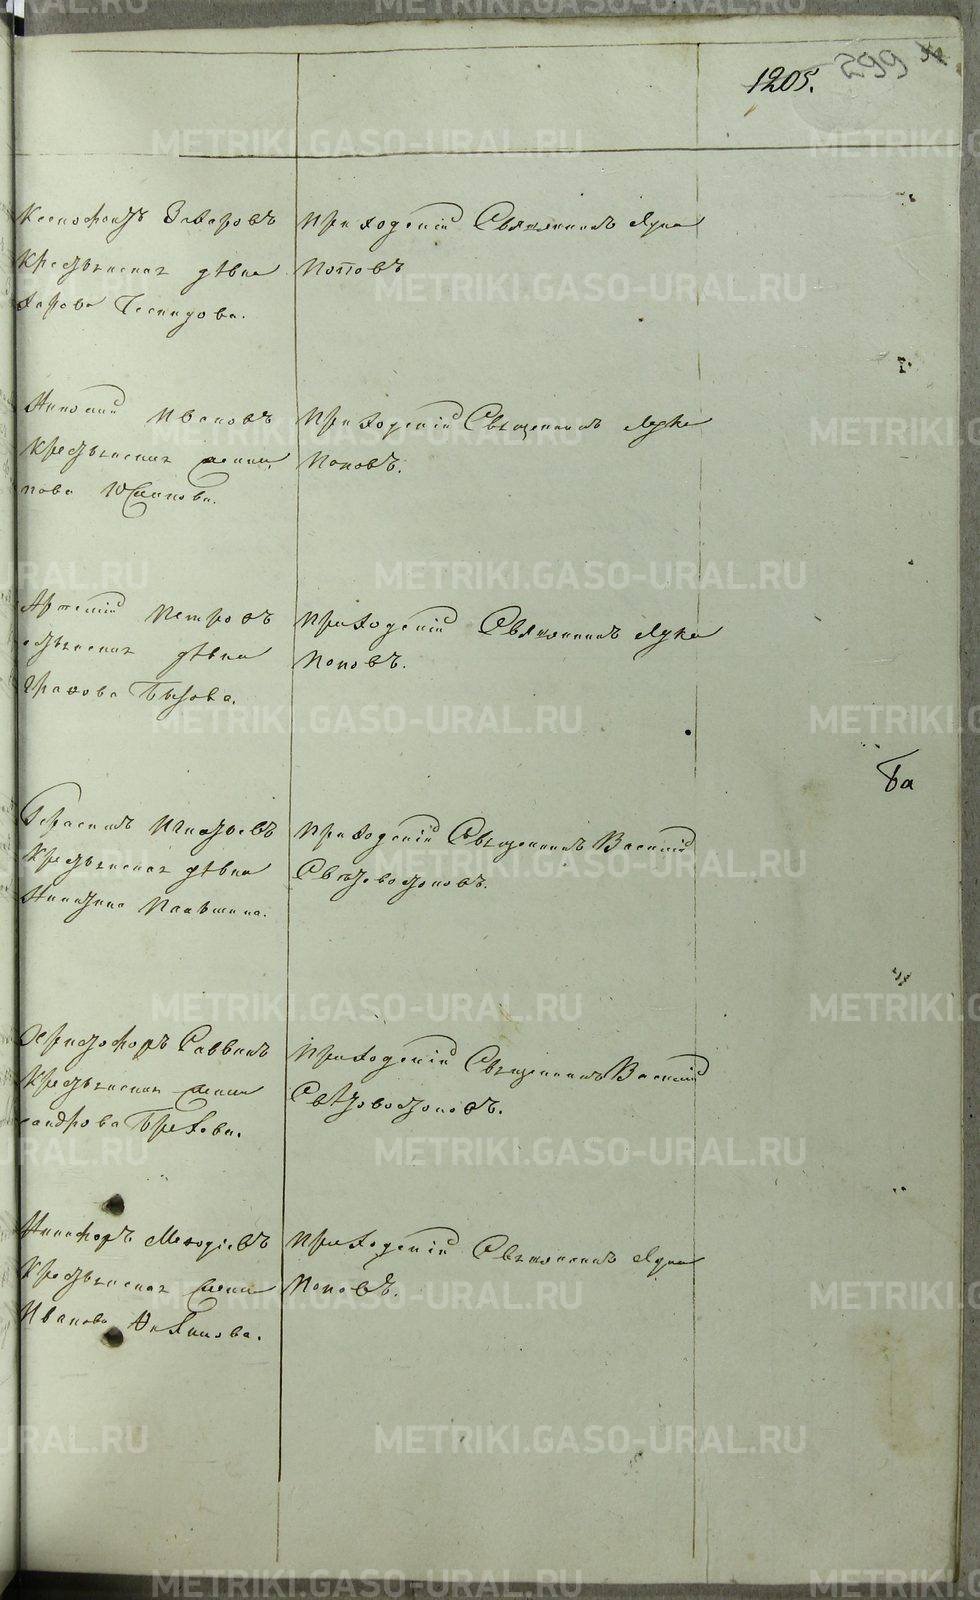 1205. 299
Ксенофонтъ Захаровъ
Крестьянская дѣвка
Беспудова.
Приходскій Священникъ Лука
Поповъ
Ивановъ
Крестьянская жена
Приходскій Священникъ Лука
Поповъ.
Артемій Петровъ
дѣвка
Бызова.
Приходскій Священникъ Лука
Поповъ.
Герасимъ Игнатьевъ
Крестьянская дѣвка
Никитина Паньшина.
Приходскій Священникъ Василій
Свѣтовостоковъ.
Христофоръ Саввинъ
Крестьянская жена
сандрова Брехова.
Приходскій Священникъ Василій
Свѣтовостоковъ.
Никифоръ Меѳодіевъ
Крестьянская жена
Иванова
Приходскій Священникъ Лука
Поповъ.
Ба
METRIKI.GASO-URAL.RU